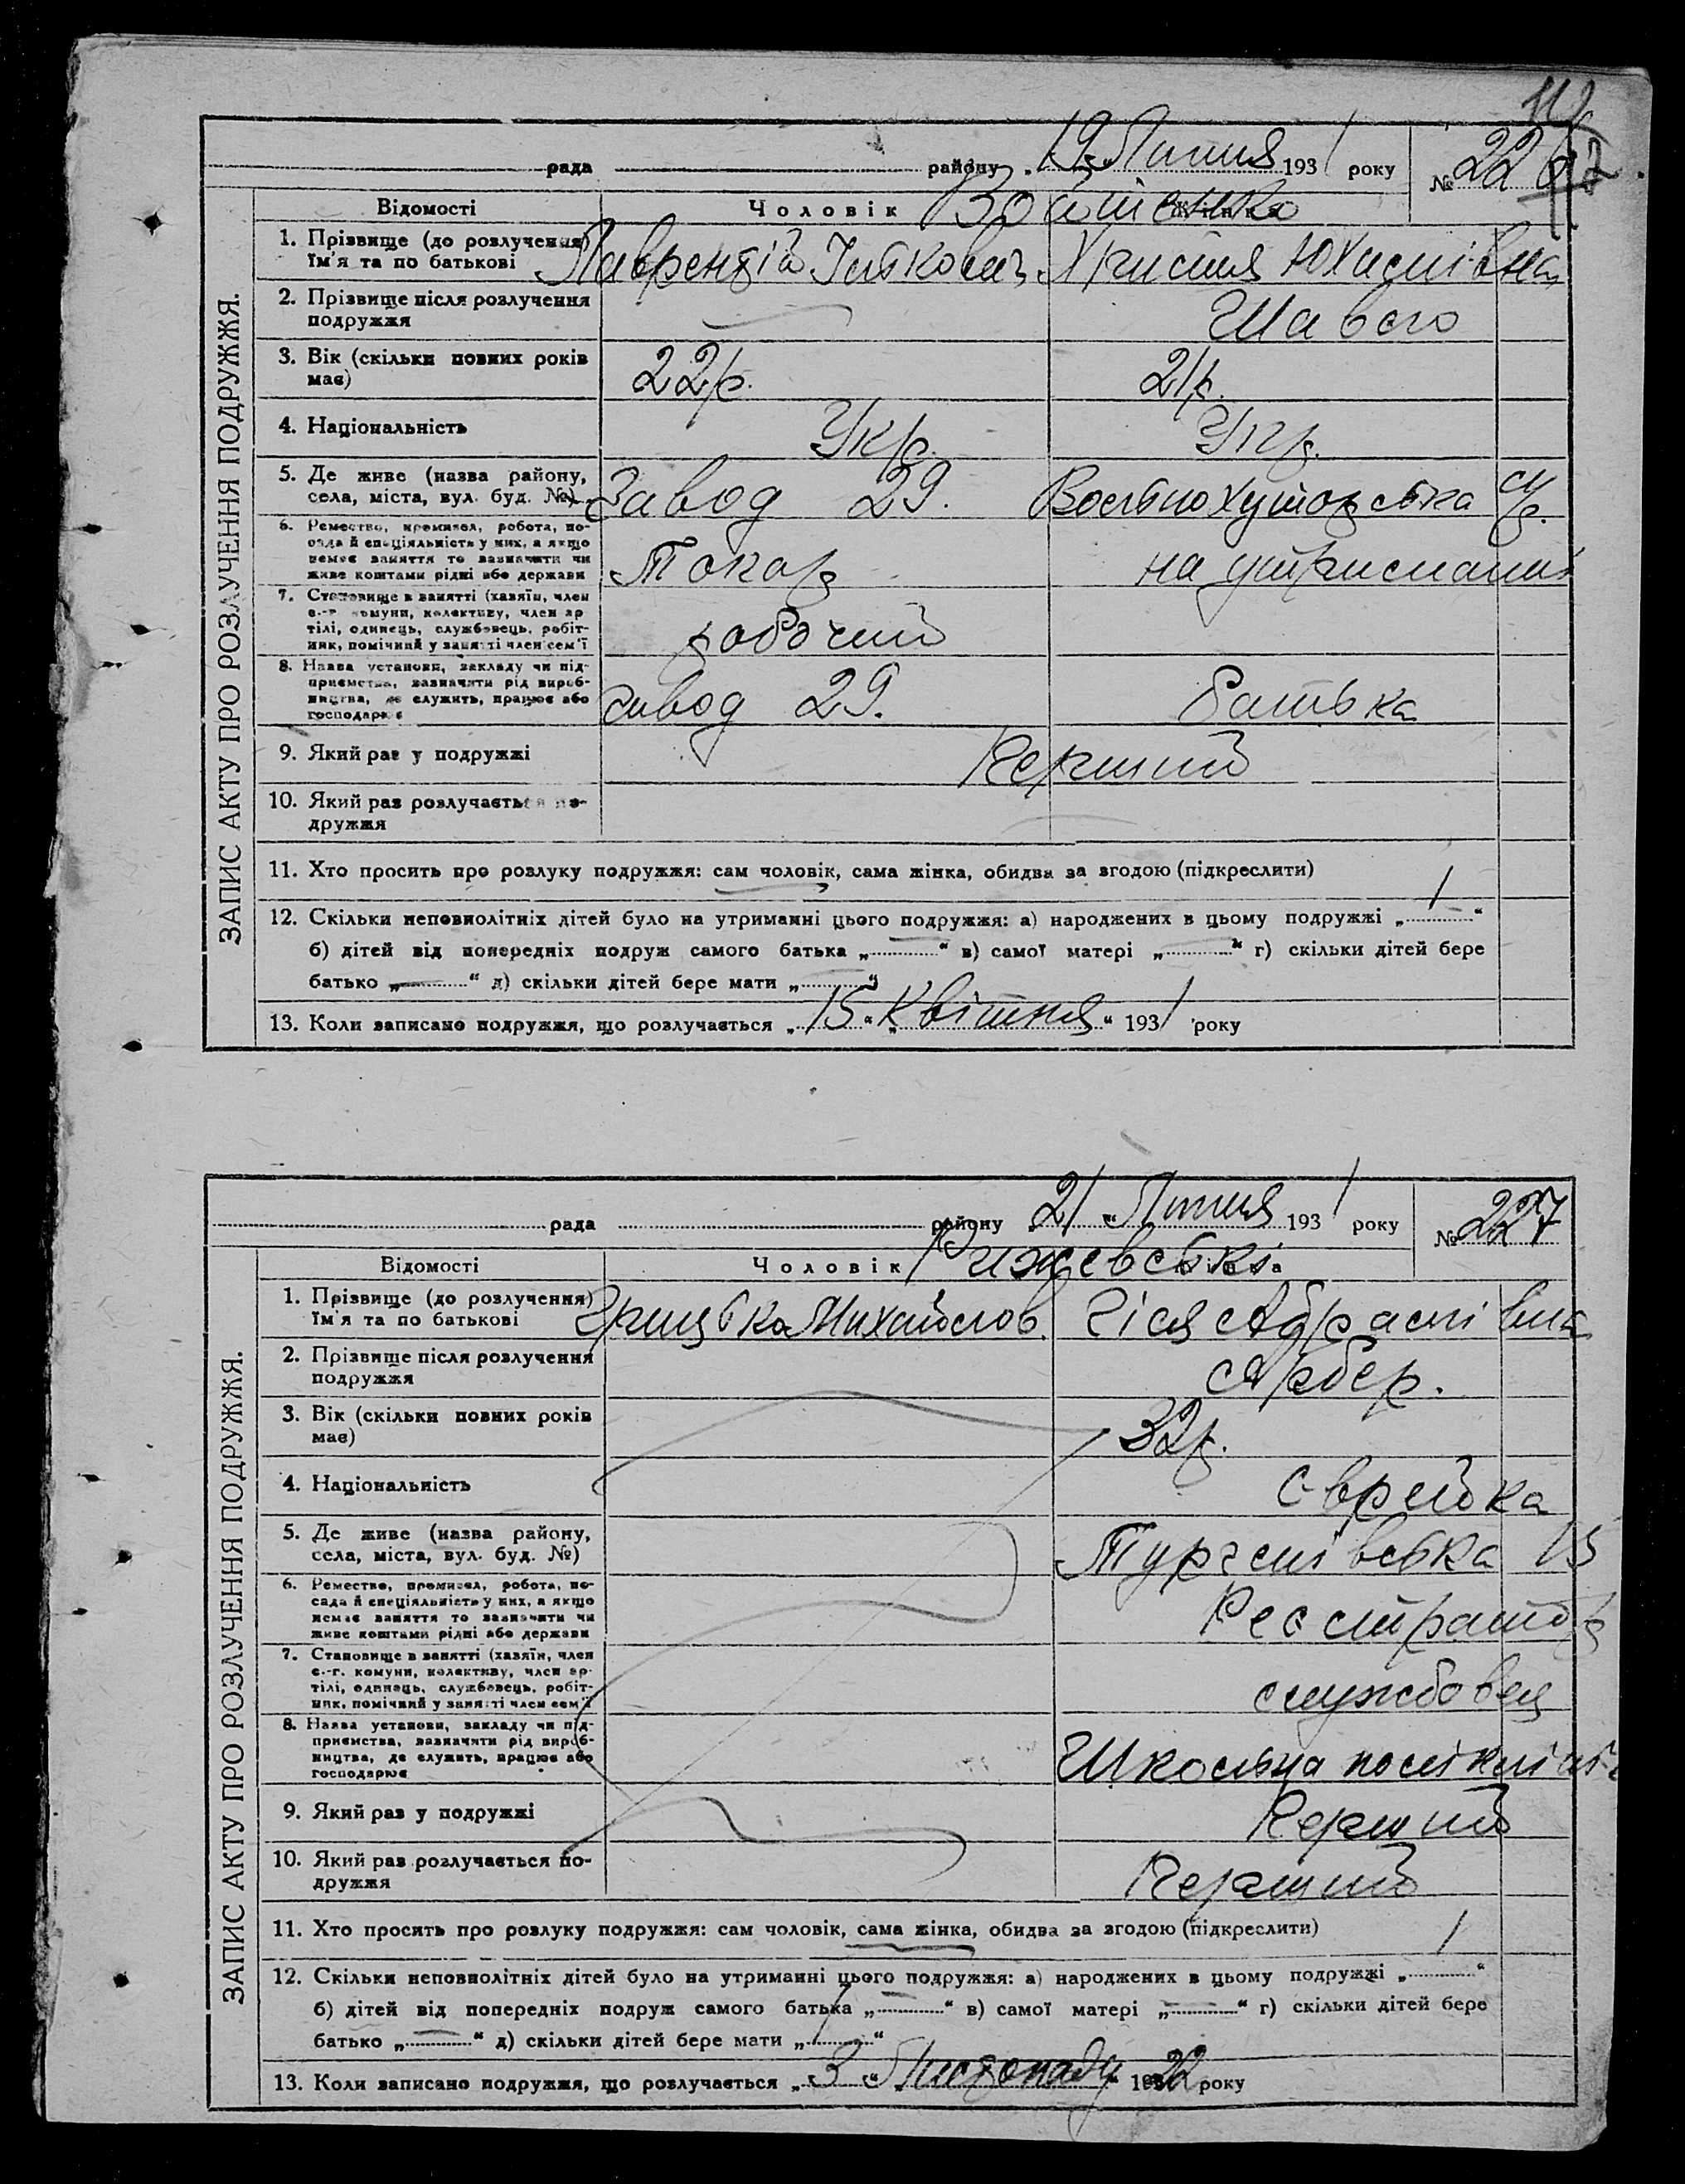 112
рада району „19“ Липня 1931 року № 226
Відомості Чоловік Жінка
Войтенко
ЗАПИС АКТУ ПРО РОЗЛУЧЕННЯ ПОДРУЖЖЯ.
1. Прізвище (до розлучення)
Ім'я та по батькові Лаврентій Юхимівна
2. Прізвище після розлучення
подружжя Шавло
3. Вік (скільки повних років
має) 22р. 21р.
4. Національність Укр. Укр.
5. Де живе (назва району,
села, міста, вул. буд. №) Завод 29.
6. Ремество, промисел, робота, по-
сада й спеціяльність у них, а якщо
немає заняття то зазначити чи
живе коштами рідні або держави Токар на утриманні
7. Становище в занятті (хазяїн, член
с.-г. комуни, колективу, член ар
тілі, одинець, службовець, робіт-
ник, помічний у занятті член сем'ї робочий
8. Назва установи, закладу чи під-
приємства, зазначити рід вироб-
ництва, де служить, працює або
господарює завод 29. батька
9. Який раз у подружжі Перший
10. Який раз розлучається по-
дружжя
11. Хто просить про розлуку подружжя: сам чоловік, сама жінка, обидва за згодою (підкреслити)
12. Скільки неповнолітніх дітей було на утриманні цього подружжя: а) народжених в цьому подружжі „1“
б) дітей від попередніх подруж самого батька „—“ в) самої матері „—“ г) скільки дітей бере
батько „—“ д) скільки дітей бере мати „“
13. Коли записано подружжя, що розлучається „15“ Квітня 1931 року
рада району „21“ Липня 1931 року № 227
Відомості Чоловік Жінка
Рижевські
ЗАПИС АКТУ ПРО РОЗЛУЧЕННЯ ПОДРУЖЖЯ.
1. Прізвище (до розлучення)
Ім'я та по батькові Грицька Михайлов. Гіся Абрамівна
2. Прізвище після розлучення
подружжя Арбер.
3. Вік (скільки повних років
має) 32р.
4. Національність Єврейка
5. Де живе (назва району,
села, міста, вул. буд. №) Тургенівська 15
6. Ремество, промисел, робота, по-
сада й спеціяльність у них, а якщо
немає заняття то зазначити чи
живе коштами рідні або держави Реєстратор
7. Становище в занятті (хазяїн, член
с.-г. комуни, колективу, член ар-
тілі, одинець, службовець, робіт-
ник, помічний у занятті член сем'ї службовец
8. Назва установи, закладу чи під-
приємства, зазначити рід вироб-
ництва, де служить, працює або
господарює Шкільна
9. Який раз у подружжі Перший
10. Який раз розлучається по-
дружжя Перший
11. Хто просить про розлуку подружжя: сам чоловік, сама жінка, обидва за згодою (підкреслити)
12. Скільки неповнолітніх дітей було на утриманні цього подружжя: а) народжених в цьому подружжі „1“
б) дітей від попередніх подруж самого батька „—“ в) самої матері „—“ г) скільки дітей бере
батько „—“ д) скільки дітей бере мати „1“
13. Коли записано подружжя, що розлучається „3“ Листопаду 1922 року